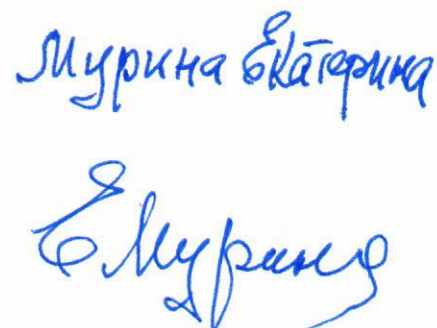 Мурина Екатерина
ЕМурина